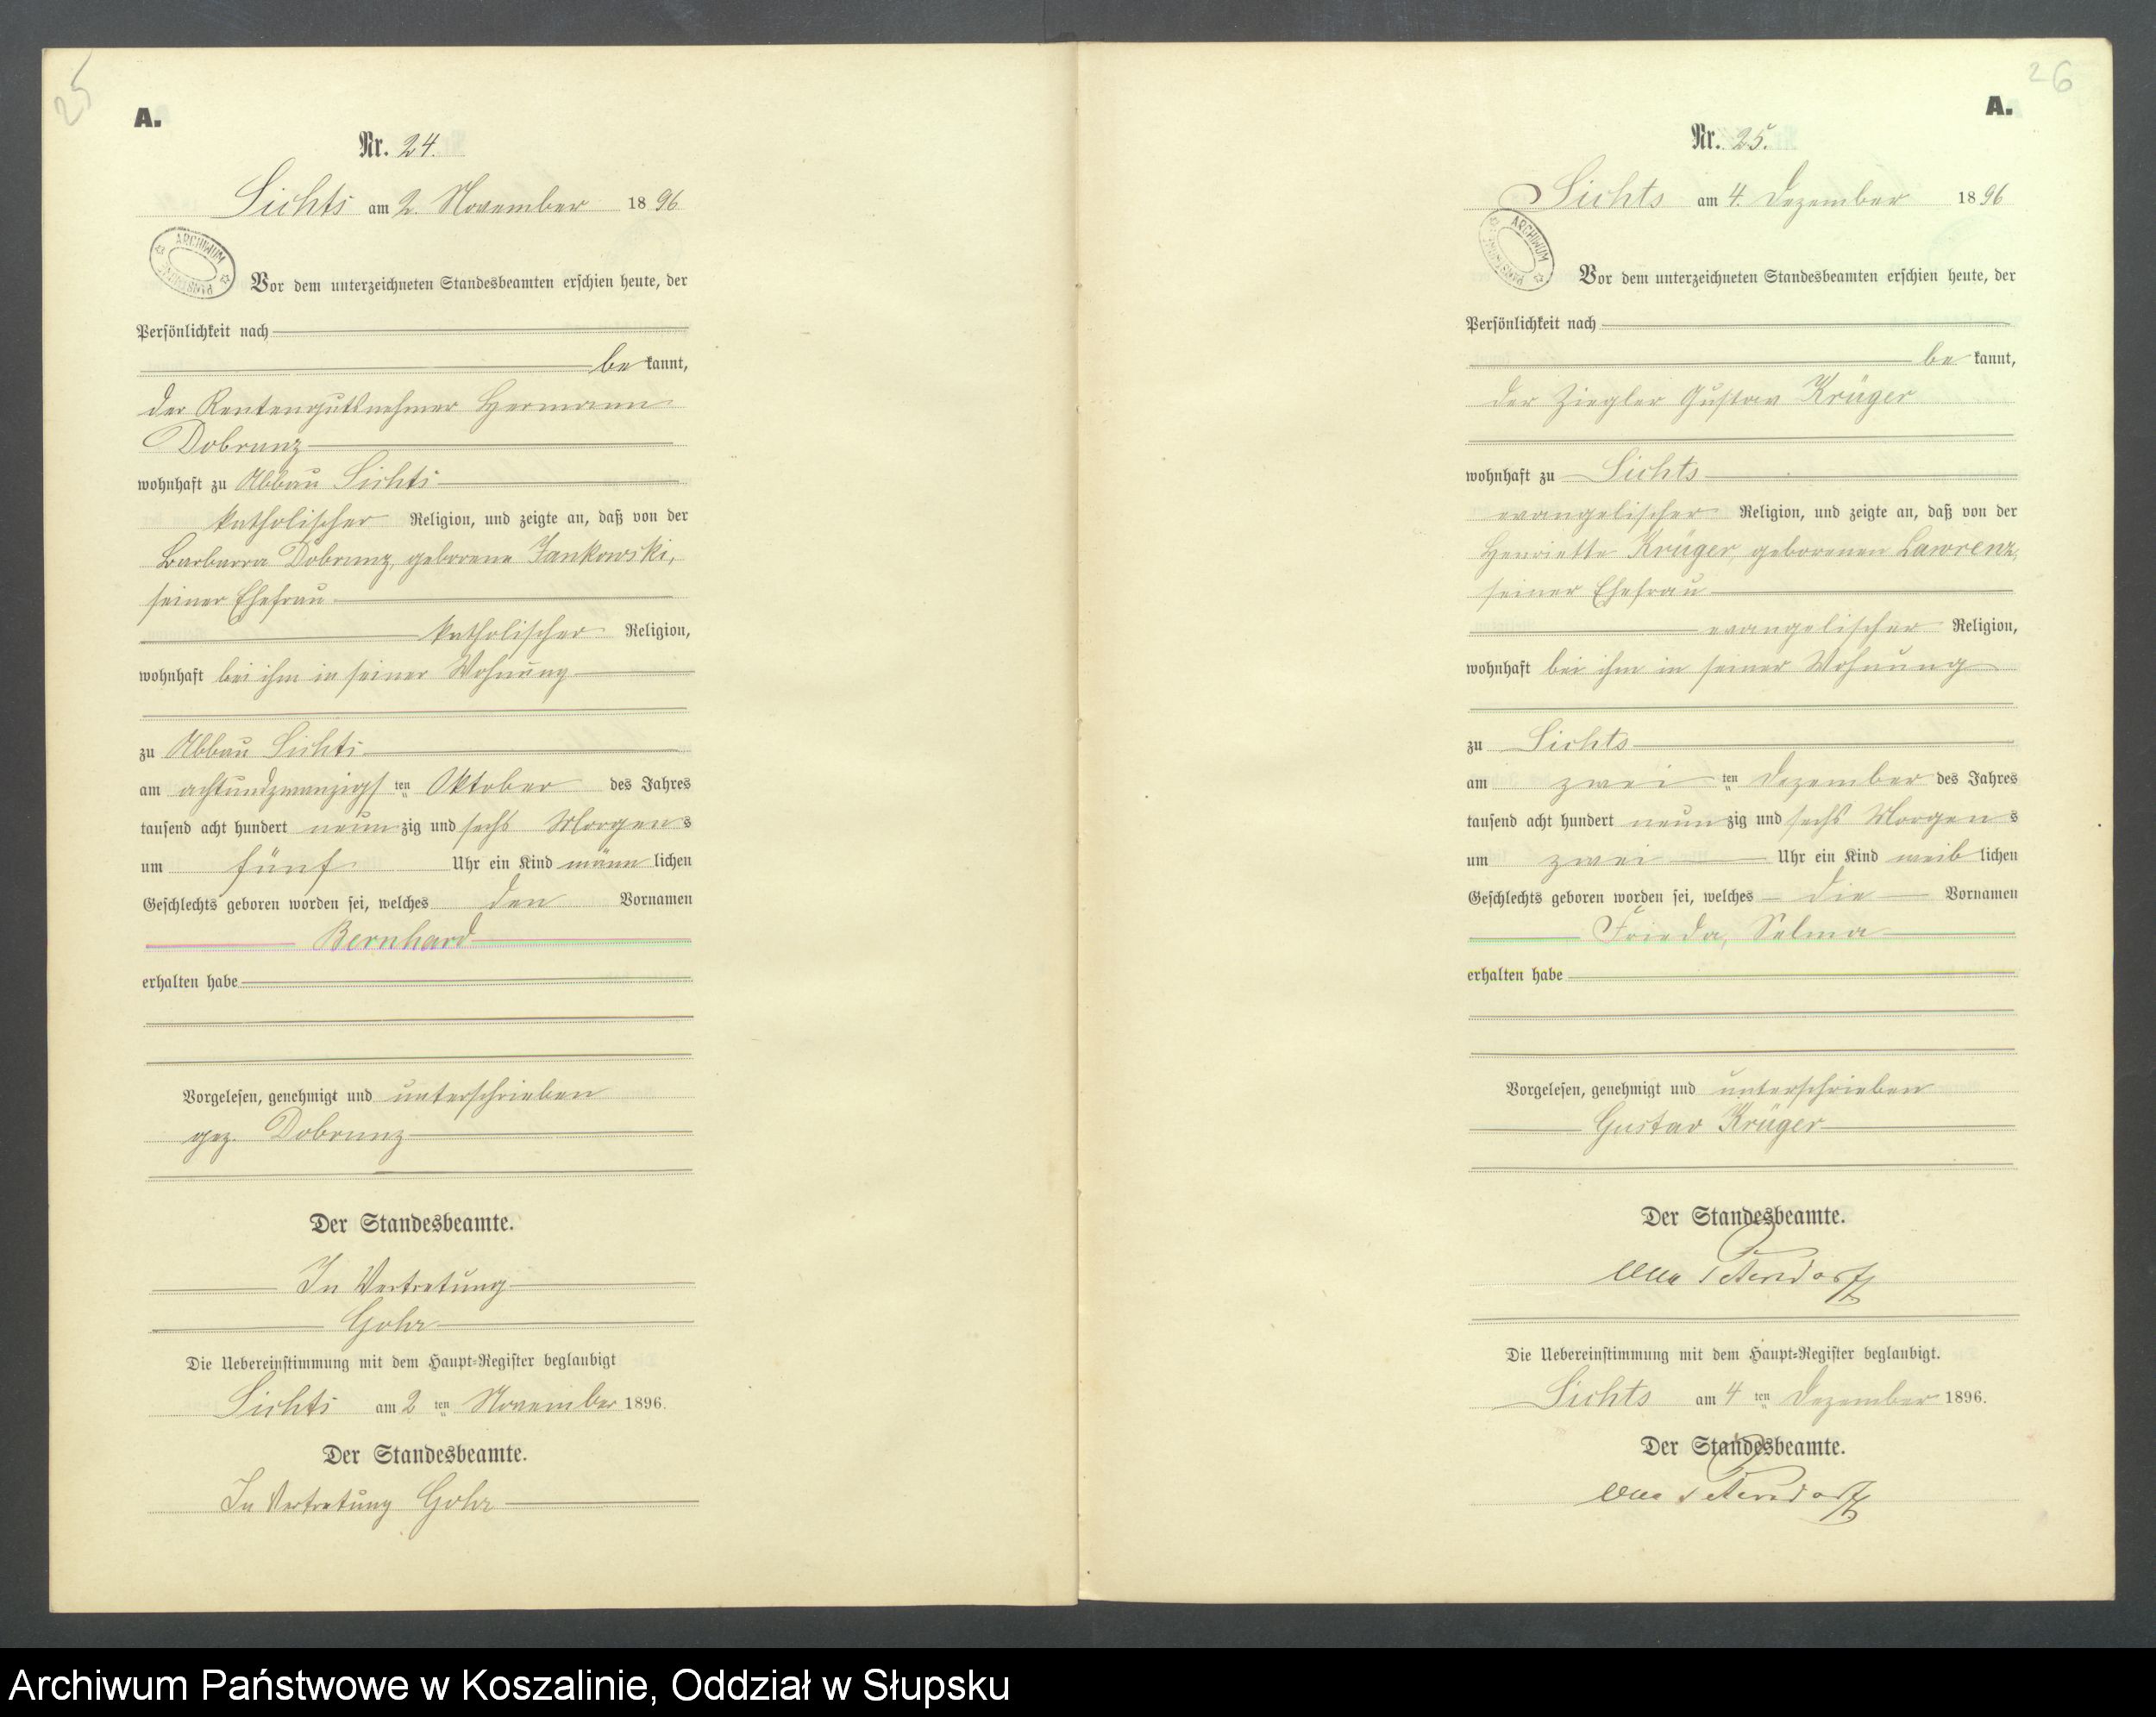 25
A.
Nr. 24.
Lichts am 2. November 1896
ARCHIWUM PAŃSTWOWE
Vor dem unterzeichneten Standesbeamten erschien heute, der
Persönlichkeit nach
be kannt,
der Rentengutsnehmer Hermann
Dobrunz
wohnhaft zu Abbau Lichts
katholischer Religion, und zeigte an, daß von der
Barbarra Dobrunz, geborene Jankowski,
seiner Ehefrau
katholischer Religion,
wohnhaft bei ihm in seiner Wohnung
zu Abbau Lichts
am achtundzwanzigs ten Oktober des Jahres
tausend acht hundert neun zig und sechs Morgens
um fünf Uhr ein Kind männ lichen
Geschlechts geboren worden sei, welches den Vornamen
Bernhard
erhalten habe
Vorgelesen, genehmigt und unterschrieben
gez. Dobrunz
Der Standesbeamte.
In Vertretung
Gohr
Die Uebereinstimmung mit dem Haupt-Register beglaubigt
Lichts am 2 ten November 1896.
Der Standesbeamte.
In Vertretung Gohr
26
A.
Nr. 25.
Lichts am 4. Dezember 1896
ARCHIWUM PAŃSTWOWE
Vor dem unterzeichneten Standesbeamten erschien heute, der
Persönlichkeit nach
be kannt,
der Ziegler Gustav Krüger
wohnhaft zu Lichts
evangelischer Religion, und zeigte an, daß von der
Henriette Krüger, geborenen Lawrenz,
seiner Ehefrau
evangelischer Religion,
wohnhaft bei ihm in seiner Wohnung
zu Lichts
am zwei ten Dezember des Jahres
tausend acht hundert neun zig und sechs Morgens
um zwei Uhr ein Kind weib lichen
Geschlechts geboren worden sei, welches die Vornamen
Frieda, Selma
erhalten habe
Vorgelesen, genehmigt und unterschrieben
Gustav Krüger
Der Standesbeamte.
Petersdorff
Die Uebereinstimmung mit dem Haupt-Register beglaubigt.
Lichts am 4 ten Dezember 1896.
Der Standesbeamte.
Petersdorff
Archiwum Państwowe w Koszalinie, Oddział w Słupsku